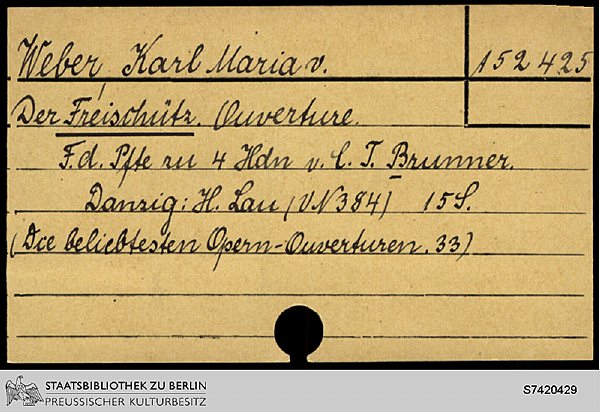 Weber, Karl Maria v. 152 425
Der Freischütz. Ouverture.
F. d. Pfte zu 4 Hdn v. C. T. Brunner.
Danzig: H. Lau (VN 384) 15 S.
(Die beliebtesten Opern-Ouverturen. 33)
STAATSBIBLIOTHEK ZU BERLIN
PREUSSISCHER KULTURBESITZ
S7420429